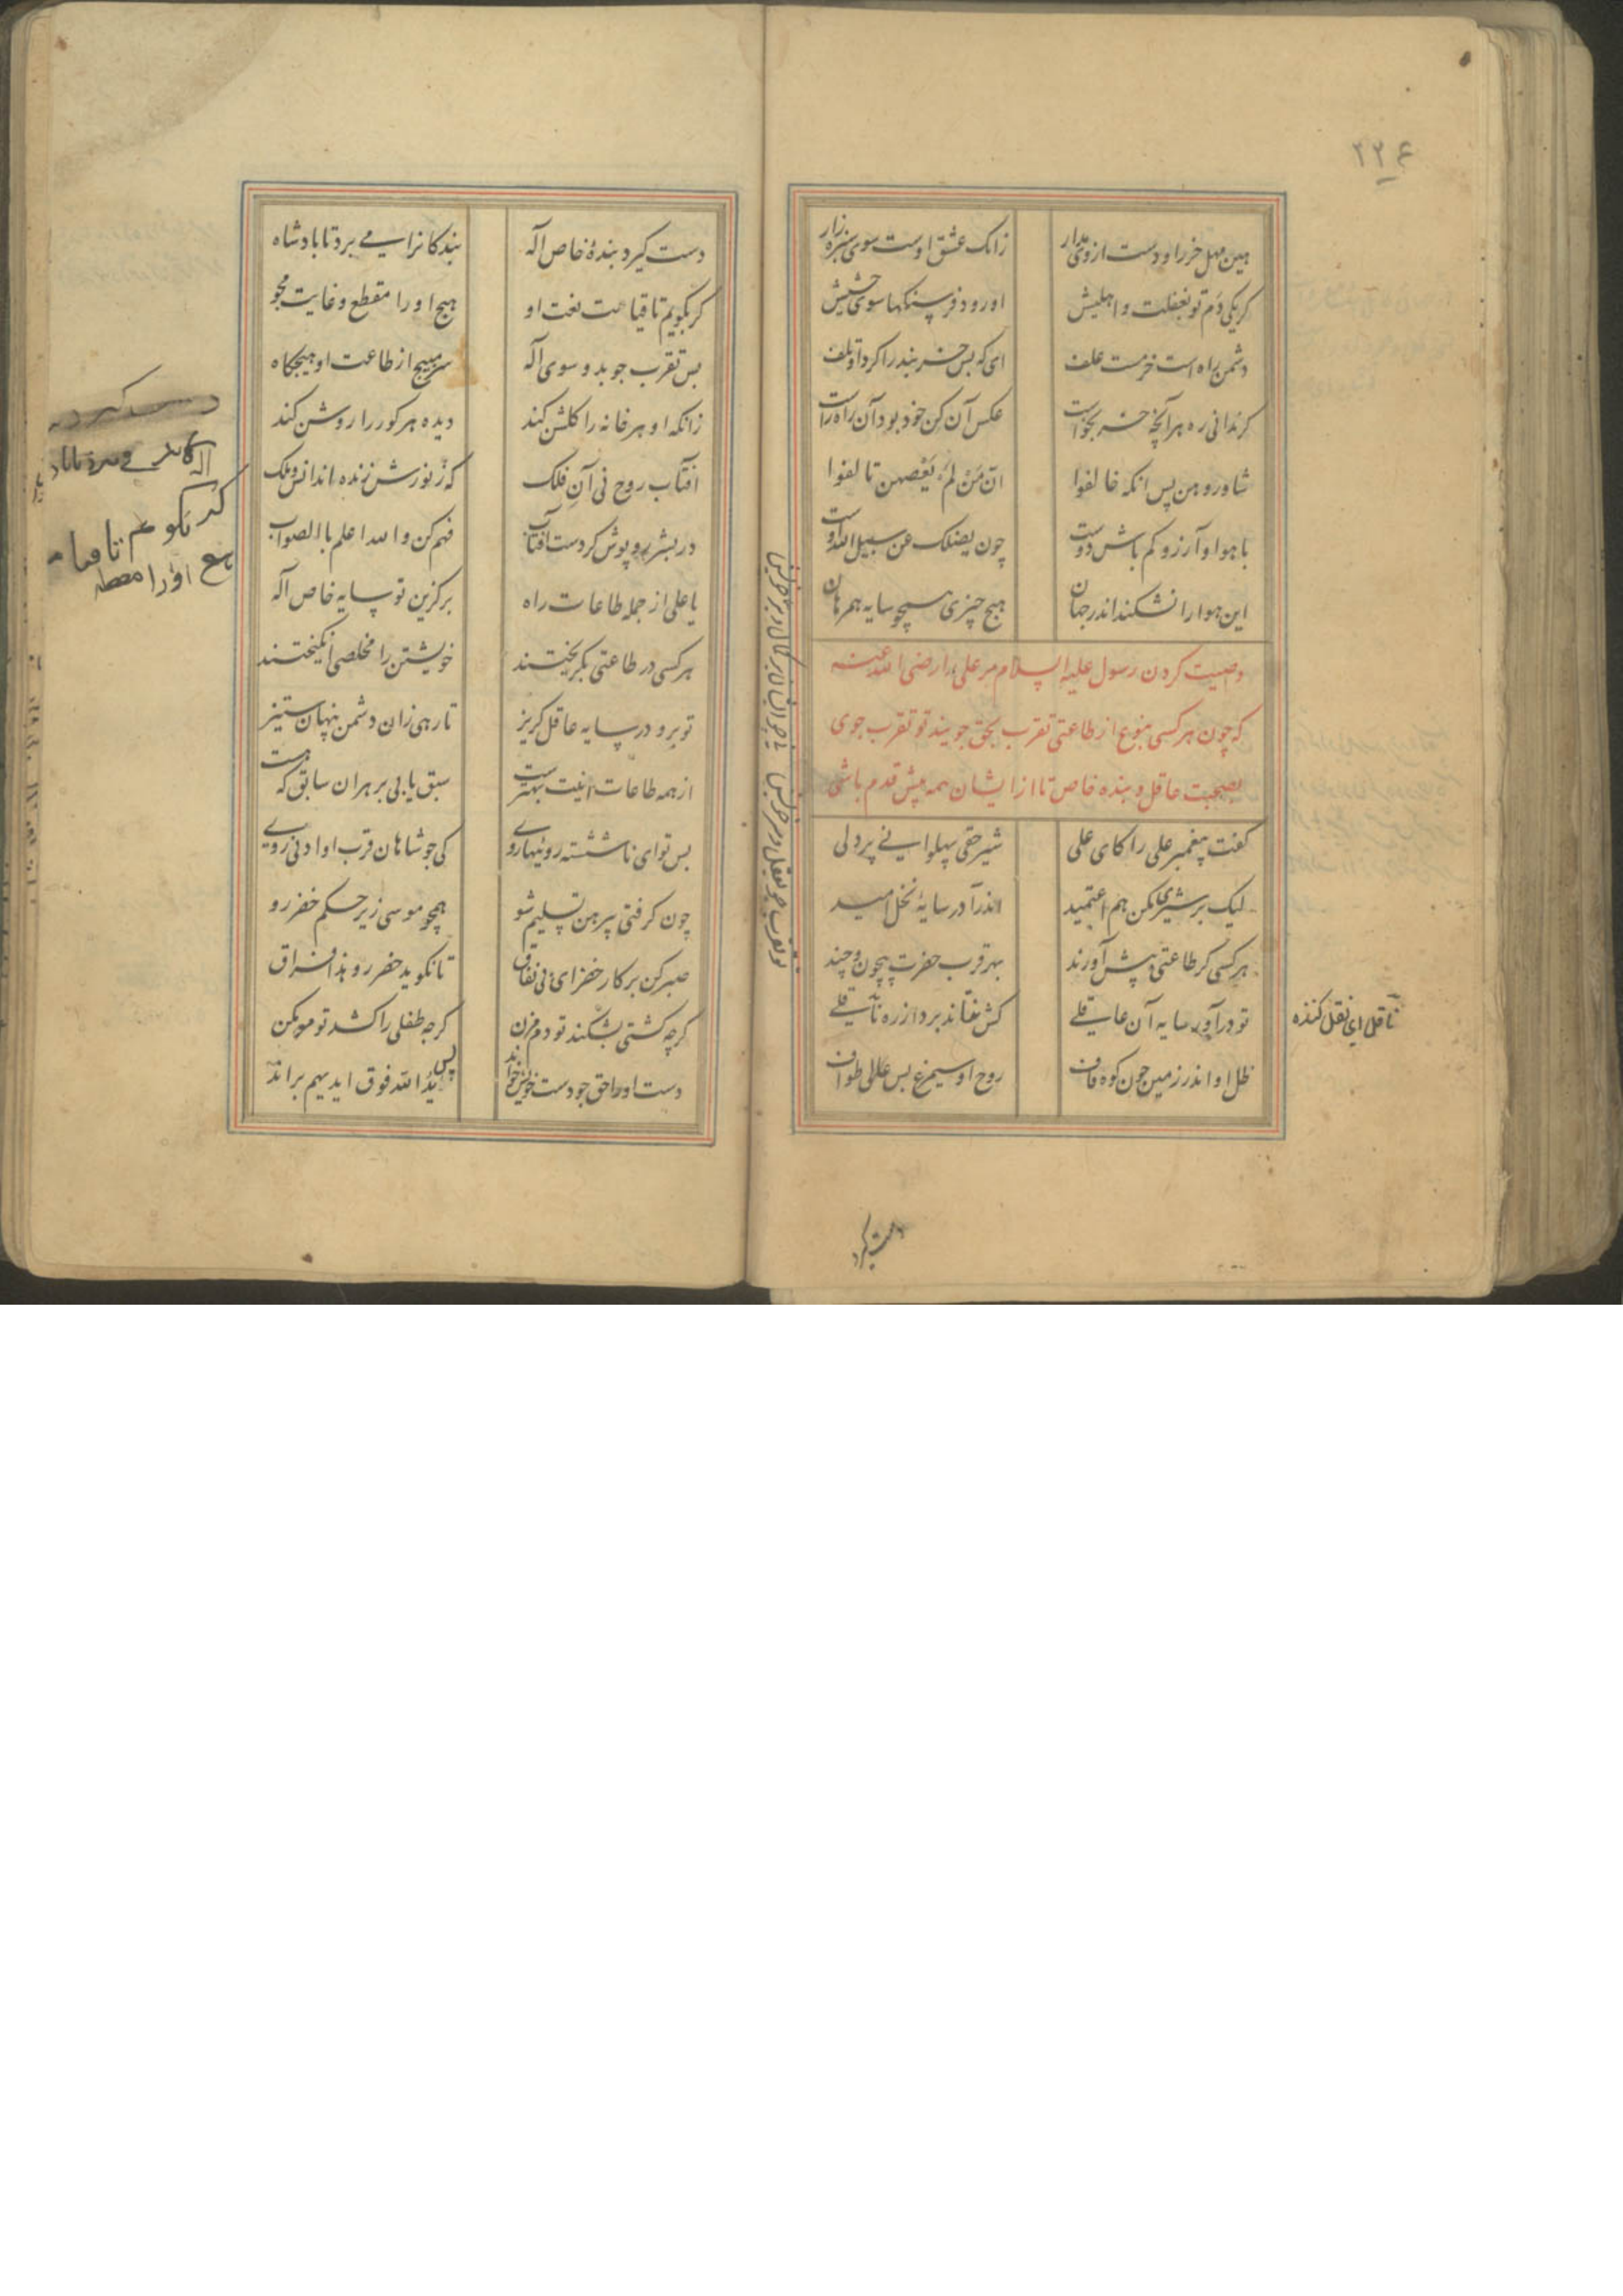 ۲۲۶
هین مهل خر را و دست از وی مدار زانک عشق اوست سوی سبزه زار
کر یکی دم تو بغفلت واهلیش او رود فرسنکها سوی حشیش
دشمن راه است خر مست علف ای که بس خر بنده را کرد او تلف
کر ندانی ره هر آنچه خر بخواست عکس آن کن خود بود آن راه راست
شاوروهن پس انکه خالفوا ان من لم یعصهن تالفوا
با هوا و آرزو کم باش دوست چون یضلک عن سبیل الله اوست
این هوا را نشکند اندر جهان هیچ چیزی همچو سایه همرهان
وصیت کردن رسول علیه السلام مر علی را رضی الله عنه
که چون هر کسی بنوع از طاعتی تقرب بحق جویند تو تقرب جوی
بصحبت عاقل و بنده خاص تا از ایشان همه پیش قدم باشی
کفت پیغمبر علی را کای علی شیر حقی پهلوانی پردلی
لیک بر شیری مکن هم اعتمید اندرآ در سایهٔ نخل امید
هر کسی کر طاعتی پیش آورند بهر قرب حضرت بیچون و چند
تو درآ در سایه آن عاقلی کش نتاند برد از ره ناقلی
ظل او اندر زمین چون کوه قاف روح او سیمرغ بس عالی طواف
ناقل ای نقل کننده
دست کیرد
دست کیرد بندهٔ خاص اله بندکانرا می برد تا بادشاه
کر بکویم تا قیامت نعت او هیچ او را مقطع و غایت مجو
بس تقرب جوید و سوی اله سر مپیچ از طاعت او هیجکاه
زانکه او هر خانه را کلشن کند دیده هر کور را روشن کند
آفتاب روح نی آن فلک که ز نورش زنده اند انس و ملک
در بشر روپوش کردست آفتاب فهم کن والله اعلم باالصواب
یا علی از جمله طاعات راه برکزین تو سایه خاص اله
هر کسی در طاعتی بکریختند خویشتن را مخلصی انکیختند
تو برو در سایه عاقل کریز تا رهی زان دشمن پنهان ستیز
از همه طاعات اینت بهترست سبق یابی بر هر آن سابق که هست
بس تو ای ناشسته رو نیها روی کی جو شاهان قرب او ادنی روی
چون کرفتی پیر هین تسلیم شو همچو موسی زیر حکم خضر رو
صبر کن بر کار خضر ای بی نفاق تا نکوید خضر رو هذا فراق
کرچه کشتی بشکند تو دم مزن کرجه طفلی را کشد تو مو مکن
دست او را حق جو دست خویش خواند پس ید الله فوق ایدیهم براند
دست کیرد
کر بکویم تا قیامت
هیچ او را مقطع